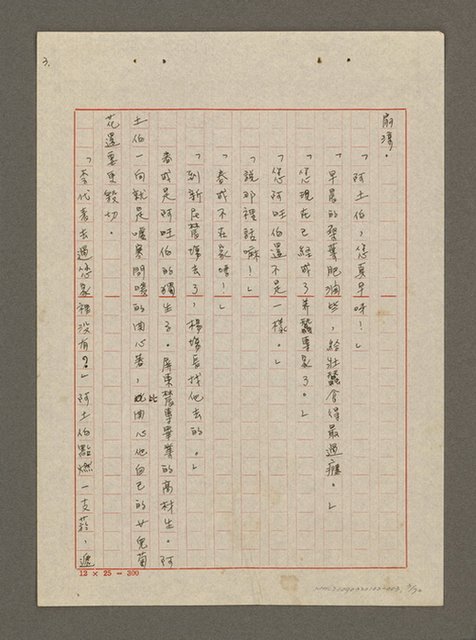 3.
扇彎。
「阿土伯，您真早呀！」
「早晨的桑葉肥潤些，給壯蠶食得最過癮。」
「您現在已經成了養蠶專家了。」
「您阿旺伯還不是一樣。」
「說那裡話嘛！」
「春成不在家唷！」
「到新民農場去了，楊場長找他去的。」
春成是阿旺伯的獨生子。屏東農專畢業的高材生。阿
土伯一向就是噓寒問暖的關心著，比關心他自己的女兒菊
花還要來毅切。
「李代書去過您家裡沒有？」阿土伯點燃一支菸，遞
12 × 25 = 300